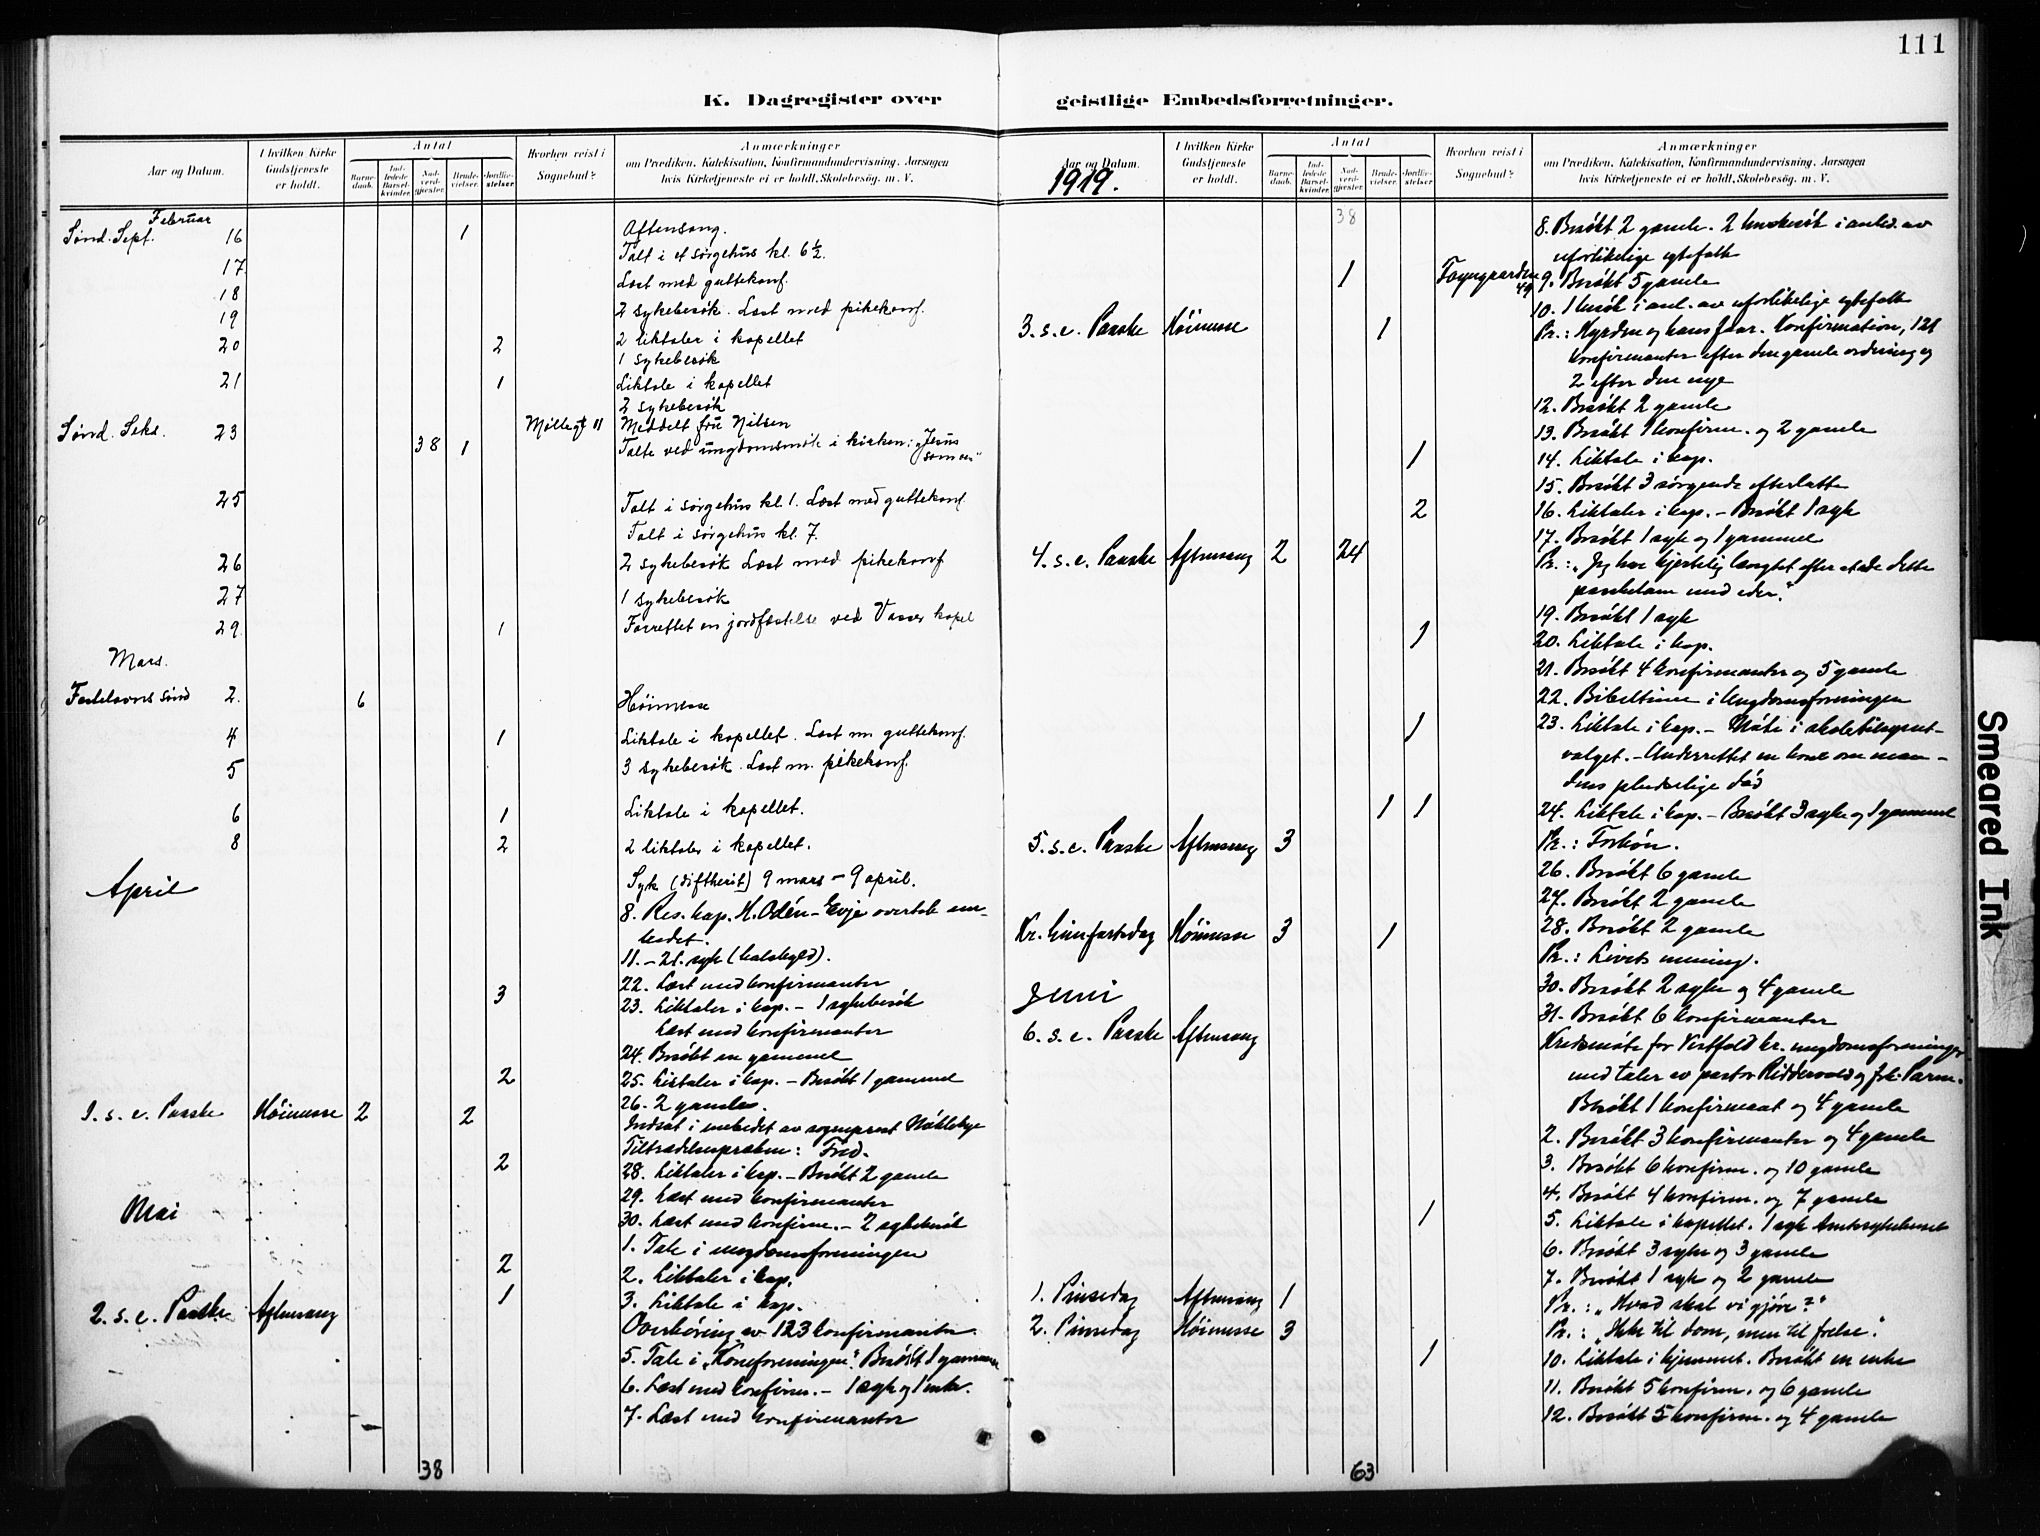 111
K. Dagregister over geistlige Embedsforretninger.
Aar og Datum.
I hvilken Kirke Gudstjeneste er holdt.
Antal
Barnedaab.
Indledede Barselkvinder.
Nadverdgjester
Brudevielser.
Jordfæstelser
Hvorhen reist i Sognebud?
Anmærkninger
om Prædiken, Katekisation, Konfirmandundervisning, Aarsagen
hvis Kirketjeneste ei er holdt, Skolebesøg, m. V.
Februar
Sønd. Sept. 16 1 Aftensang.
Talt i et sørgehus kl. 6½.
17 Læst med guttekonf.
18 2 sykebesøk. Læst med pikekonf.
19
20 2 2 liktaler i kapellet
1 sykebesøk
21 1 Liktale i kapellet
2 sykebesøk
Sønd. Seks. 23 38 1 Møllegt 11 Meddelt fru Nilsen
Talte ved ungdomsmøte i kirken: "Jesus
som ven"
25 Talt i sørgehus kl. 1. Læst med guttekonf.
Talt i sørgehus kl. 7.
26 2 sykebesøk Læst med pikekonf
27 1 sykebesøk
29. 1 Forrettet en jordfæstelse ved Vasser kapel
Mars.
Fastelavns sønd 2. 6 Høimesse
4 1 Liktale i kapellet. Læst m. guttekonf.
5 3 sykebesøk. Læst m. pikekonf.
6 1 Liktale i kapellet.
8 2 2 liktaler i kapellet.
Syk (difterit) 9 mars - 9 april.
April
8. Res. kap. H. Odén-Evje overtok em-
bedet.
11. - 21. syk (halsbyld).
22. Læst med konfirmanter
3 23. Liktaler i kap. - 1 sykebesøk
Læst med konfirmanter
24. Besøkt en gammel
2 25. Liktaler i kap. - Besøkt 1 gammel
26. 2 gamle.
1. s. e. Paaske Høimesse 2 2 Indsat i embedet av sogneprest Nøklebye
Tiltrædelsespræken: Fred.
2 28. Liktaler i kap. - Besøkt 2 gamle
29. Læst med konfirmanter
30. Læst med konfirm. - 2 sykebesøk
Mai
1. Tale i ungdomsforeningen
2 2. Liktaler i kap.
1 3. Liktale i kap.
2. s. e. Paaske Aftensang Overhøring av 123 konfirmanter.
5. Tale i "Koneforeningen". Besøkt 1 gammel
6. Læst med konfirm. - 1 syk og 1 enke.
7. Læst med konfirmanter
38
Aar og Datum.
1919.
I hvilken Kirke Gudstjeneste er holdt.
Antal
Barnedaab.
Indledede Barselkvinder.
Nadverdgjester
Brudevielser.
Jordfæstelser
Hvorhen reist i Sognebud?
Anmærkninger
om Prædiken, Katekisation, Konfirmandundervisning, Aarsagen
hvis Kirketjeneste ei er holdt, Skolebesøg, m. V.
38 8. Besøkt 2 gamle. 2 husbesøk i anled. av
uforlikelige egtefolk
1 Foyngaarden 49 9. Besøkt 5 gamle
10. 1 besøk i anl. av uforlikelige egtefolk
3. s. e. Paaske Høimesse 1 Pr.: Hyrden og hans faar. Konfirmation, 121
konfirmanter efter den gamle ordning og
2 efter den nye
12. Besøkt 2 gamle
13. Besøkt 1 konfirm. og 2 gamle
1 14. Liktale i kap.
15. Besøkt 3 sørgende efterlatte
2 16. Liktaler i kap. - Besøkt 1 syk
17. Besøkt 1 syk og 1 gammel
4. s. e. Paaske Aftensang 2 24 Pr.: "Jeg har hjertelig længtet efter at æte dette
paaskelam med eder."
19. Besøkt 1 syk
1 20. Liktale i kap.
21. Besøkt 4 konfirmanter og 5 gamle
22. Bibeltime i Ungdomsforeningen
1 23. Liktale i kap. - Møte i skoletilsynsut-
valget. - Underrettet en kone om man-
dens pludselige død
1 1 24. Liktale i kap. - Besøkt 3 syke og 1 gammel
5. s. e. Paaske Aftensang 3 Pr.: Forbøn.
26. Besøkt 6 gamle
27. Besøkt 2 gamle
28. Besøkt 2 gamle
Kr. himfartsdag Høimesse 3 1 Pr.: Livets mening.
30. Besøkt 2 syke og 4 gamle
Juni
31. Besøkt 6 konfirmanter
6. s. e. Paaske Aftensang Kredsmøte for Vestfold kr. ungdomsforeninger
med taler av pastor Riddervold og frk. Parm.
Besøkt 1 konfirmant og 4 gamle
2. Besøkt 3 konfirmanter og 4 gamle
3. Besøkt 6 konfirm. og 10 gamle
4. Besøkt 4 konfirm. og 7 gamle
1 5. Liktale i kapellet. 1 syk Amtssykehuset
6. Besøkt 3 syke og 3 gamle
7. Besøkt 1 syk og 2 gamle
1. Pinsedag Aftensang 1 Pr.: "Hvad skal vi gjøre?"
2. Pinsedag Høimesse 3 Pr.: "Ikke til dom, men til frelse".
1 10. Liktale i hjemmet. Besøkt en enke
11. Besøkt 5 konfirm. og 6 gamle
12. Besøkt 5 konfirm. og 4 gamle
63
Smeared Ink